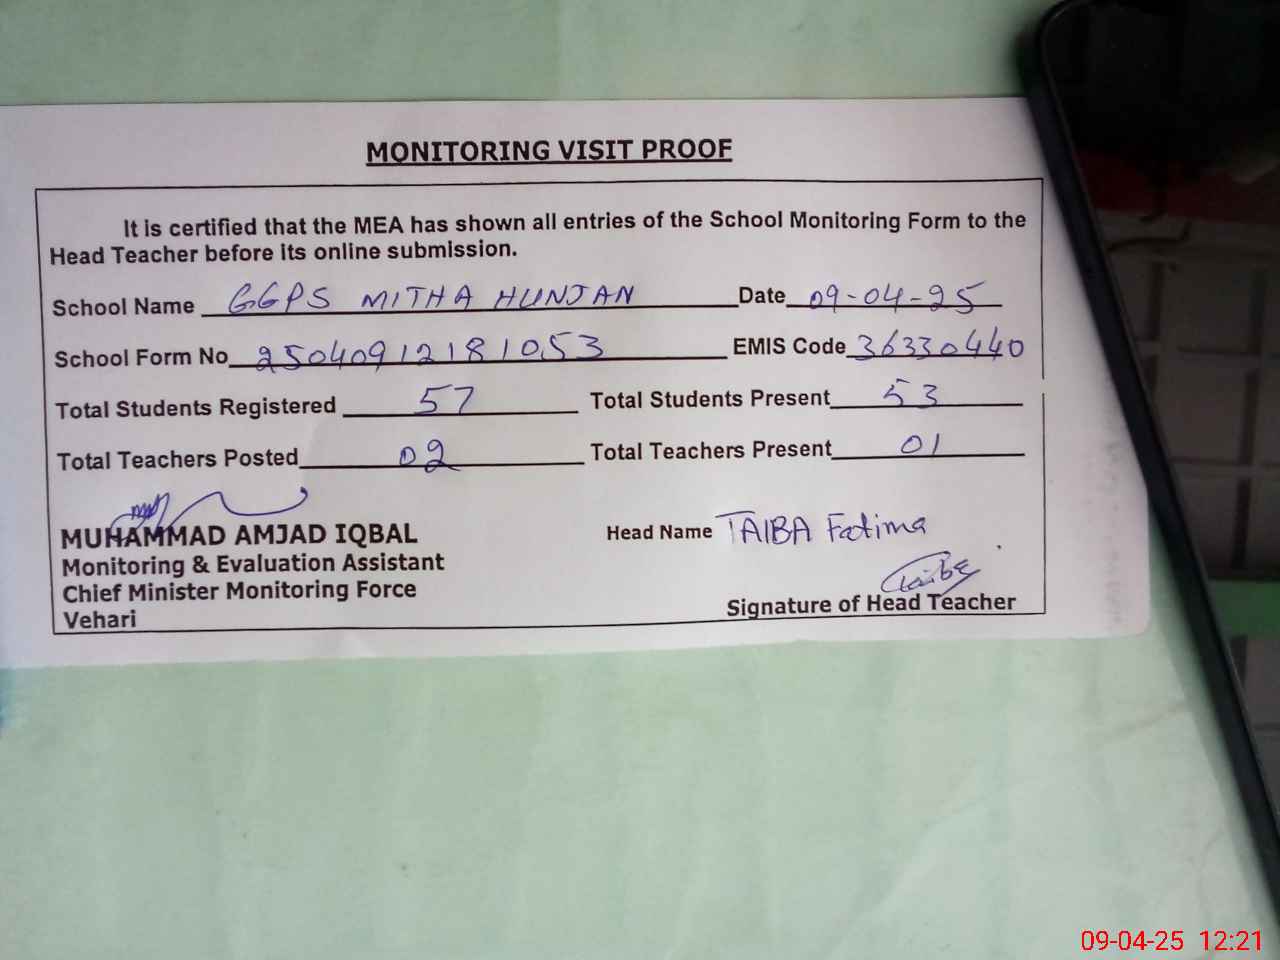 MONITORING VISIT PROOF
It is certified that the MEA has shown all entries of the School Monitoring Form to the
Head Teacher before its online submission.
School Name GGPS MITHA HUNJAN Date 09-04-25
School Form No 25040912181053 EMIS Code 36330440
Total Students Registered 57 Total Students Present 53
Total Teachers Posted 02 Total Teachers Present 01
MUHAMMAD AMJAD IQBAL Head Name TAIBA Fatima
Monitoring & Evaluation Assistant
Chief Minister Monitoring Force
Taiba
Signature of Head Teacher
Vehari
09-04-25 12:21